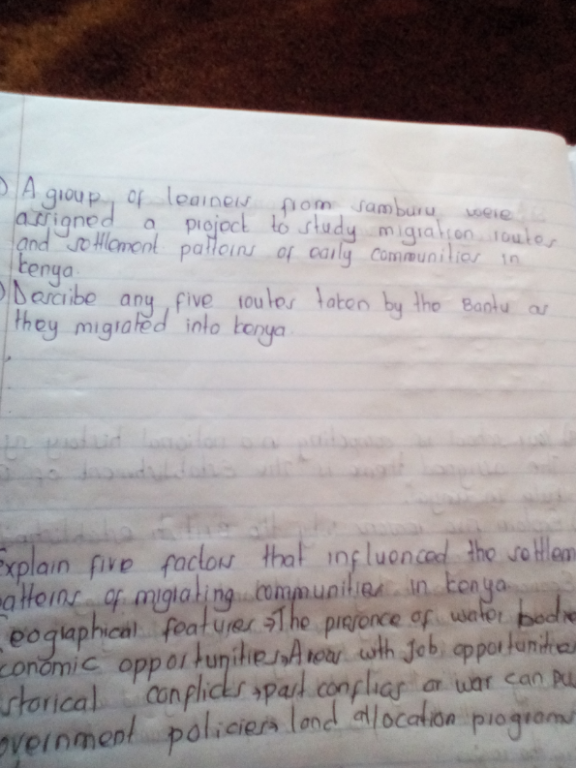 A group of learners from samburu were
assigned a project to study migration routes
and settlement patterns of early communities in
kenya.
Describe any five routes taken by the Bantu as
they migrated into kenya.
explain five factors that influenced the settlem
atterns of migrating communities in kenya
eographical features → The presence of water bodie
conomic opportunities → Areas with job opportunities
storical conflicts → past conflics or war can pu
overnment policies → land allocation programs